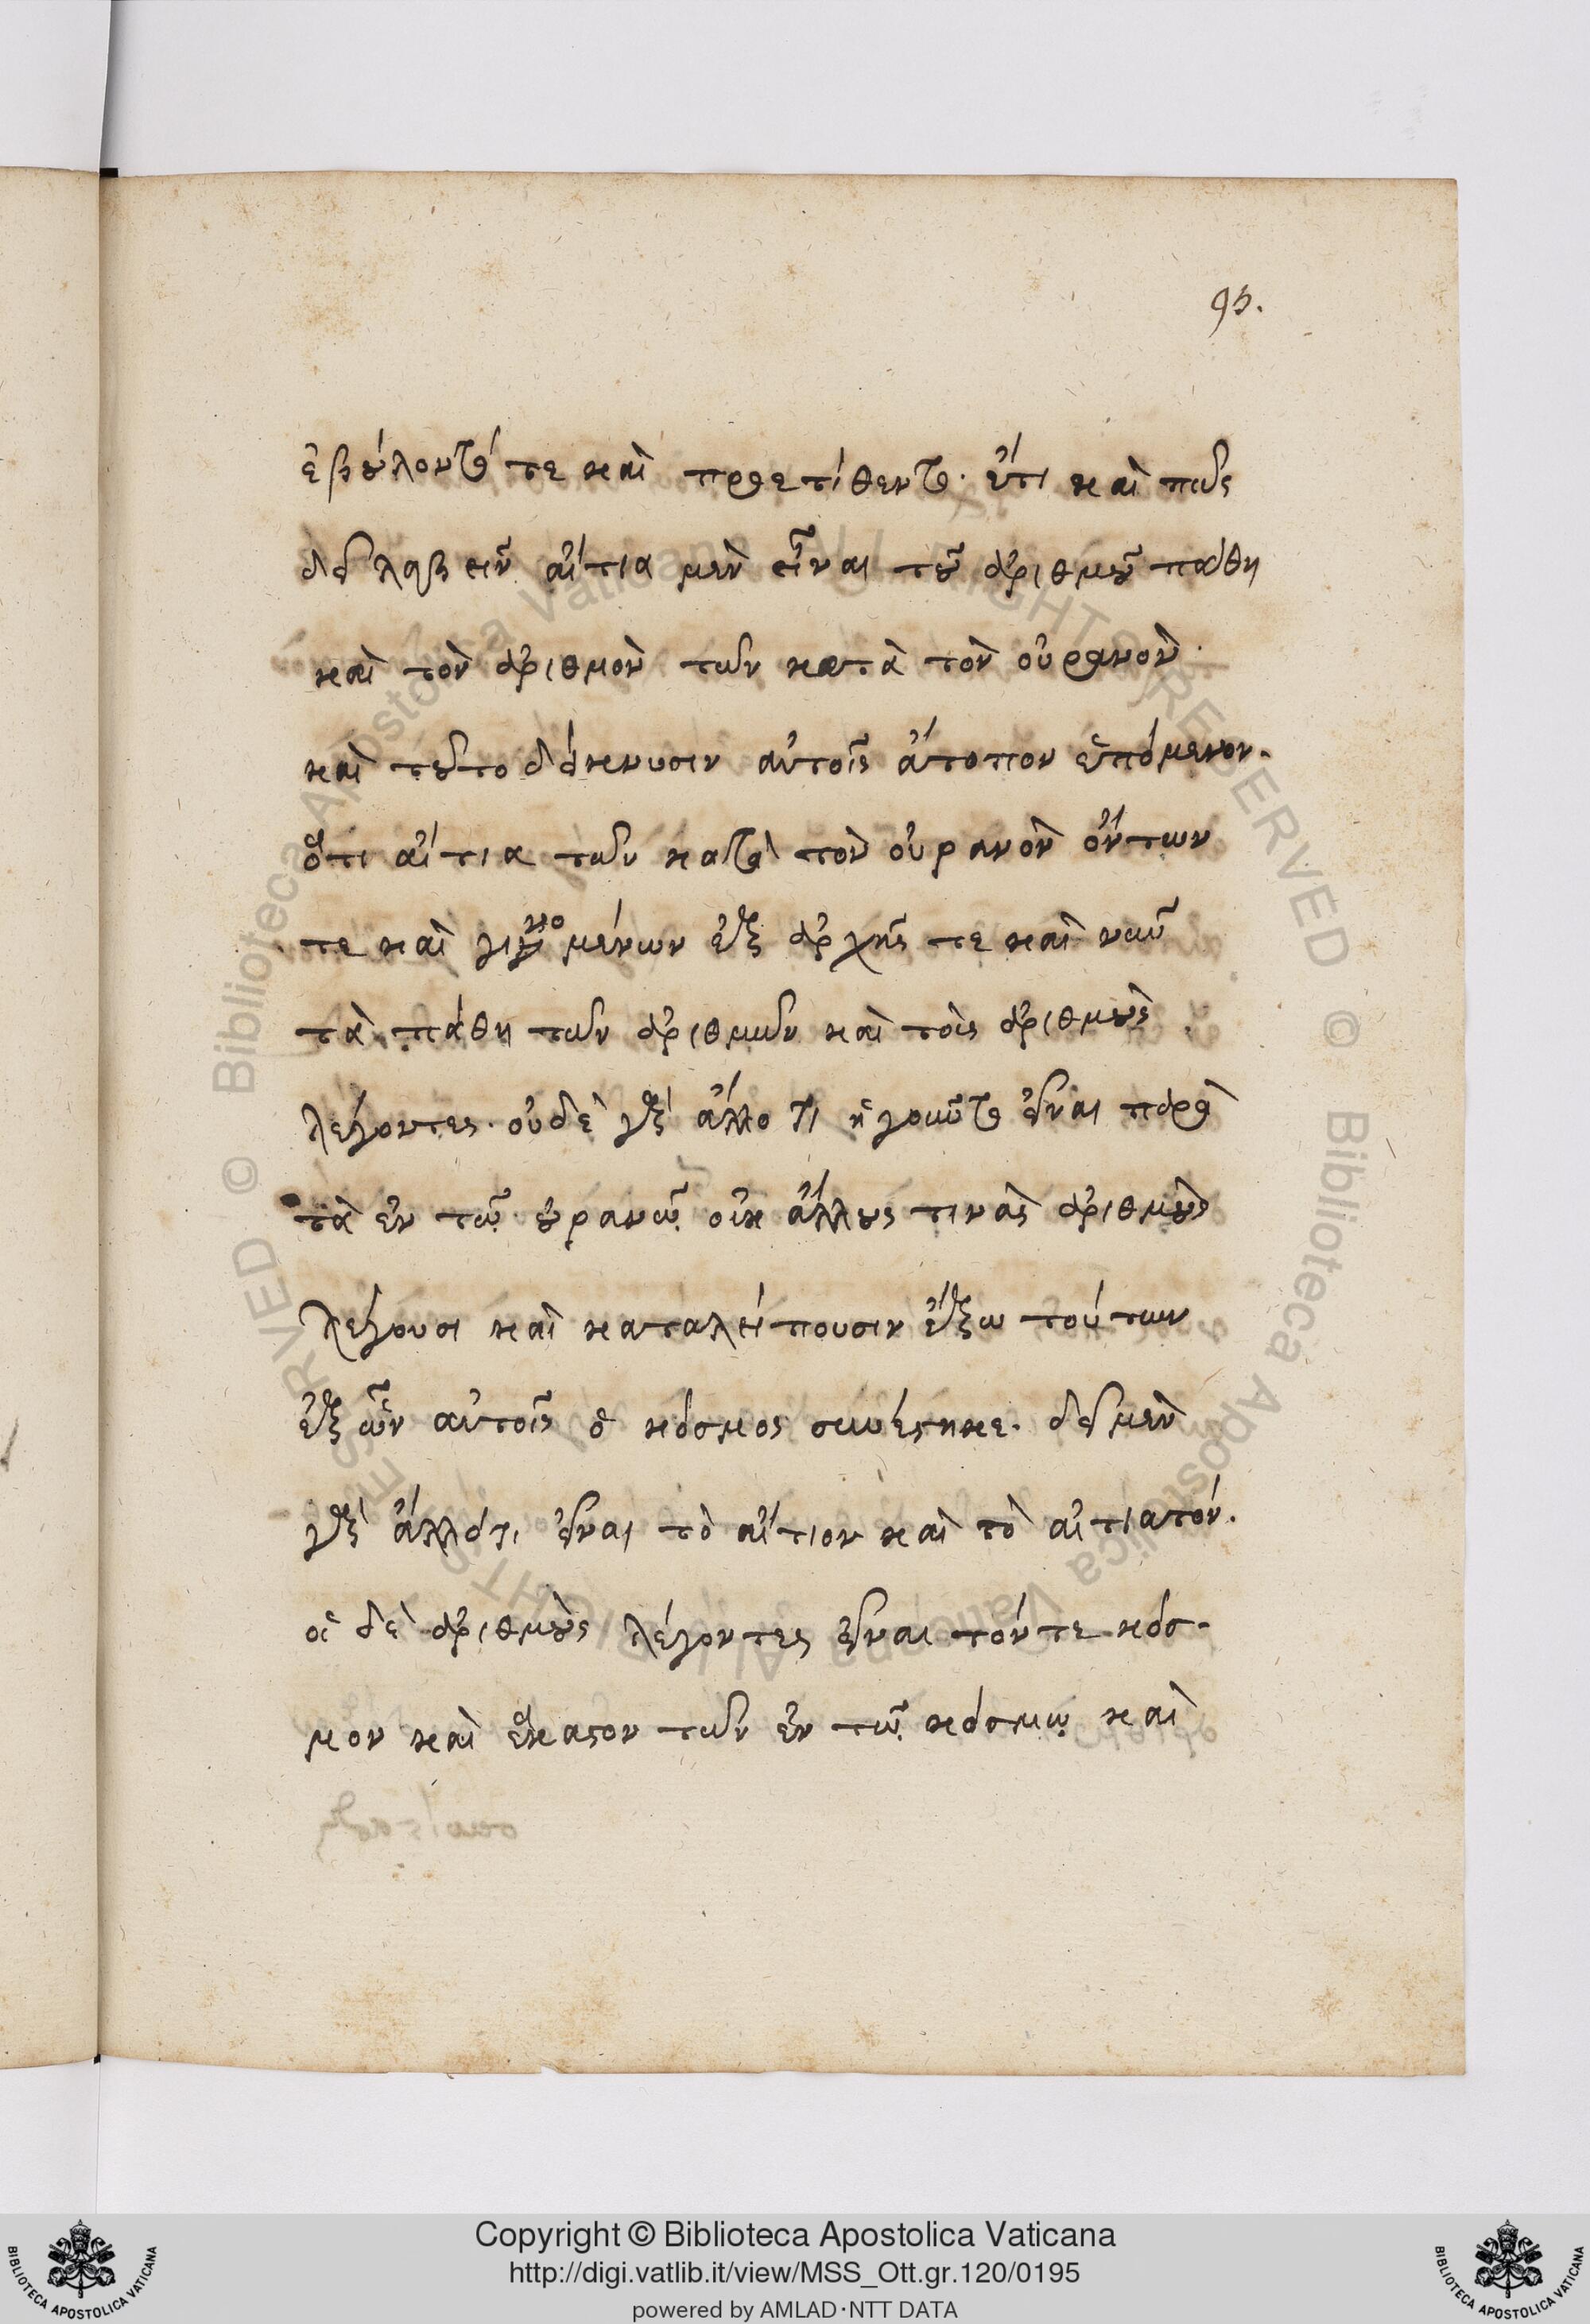 95.
ἐβούλοντό τε καὶ προετίθεντο. ἔτι καὶ πῶς
δεῖ λαβεῖν αἴτια μὲν εἶναι τοῦ ἀριθμοῦ πάθη
καὶ τὸν ἀριθμὸν τῶν κατὰ τὸν οὐρανὸν.
καὶ τοῦτο δείκνυσιν αὐτοῖς ἄτοπον ἑπόμενον.
ὅτι αἴτια τῶν κατὰ τὸν οὐρανὸν ὄντων
τε καὶ γινομένων ἐξ ἀρχῆς τε καὶ νῦν
τὰ πάθη τῶν ἀριθμῶν καὶ τοὶς ἀριθμοὺς
λέγοντες. οὐδὲν ἄλλο τι ἡγοῦνται εἶναι παρὰ
τὰ ἐν τῷ οὐρανῷ οὐκ ἄλλους τινὰς ἀριθμοὺς
λέγουσι καὶ καταλείπουσιν ἔξω τούτων
ἐξ ὧν αὐτοῖς ὁ κόσμος συνέστηκε. δεῖ μὲν
γὰρ ἄλλό τι εἶναι τὸ αἴτιον καὶ τὸ αἰτιατόν.
οἱ δὲ ἀριθμοὺς λέγοντες εἶναι τόν τε κόσ-
μον καὶ ἕκαστον τῶν ἐν τῷ κόσμῳ καὶ
Copyright © Biblioteca Apostolica Vaticana
http://digi.vatlib.it/view/MSS_Ott.gr.120/0195
powered by AMLAD·NTT DATA
BIBLIOTECA APOSTOLICA VATICANA
BIBLIOTECA APOSTOLICA VATICANA